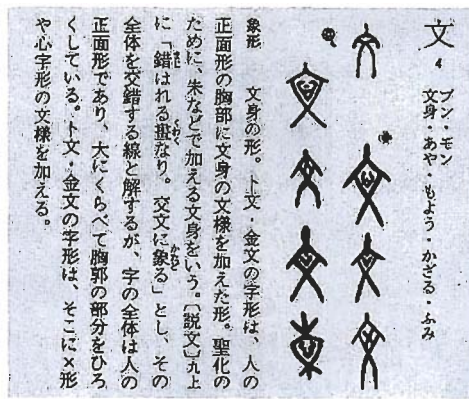 文 4
ブン・モン
文身・あや・もよう・かざる・ふみ
象形　文身の形。卜文・金文の字形は、人の
正面形の胸部に文身の文様を加えた形。聖化の
ために、朱などで加える文身をいう。〔説文〕九上
に「錯はれる畫なり。交文に象る」とし、その
全体を交錯する線と解するが、字の全体は人の
正面形であり、大にくらべて胸郭の部分をひろ
くしている。卜文・金文の字形は、そこに×形
や心字形の文様を加える。